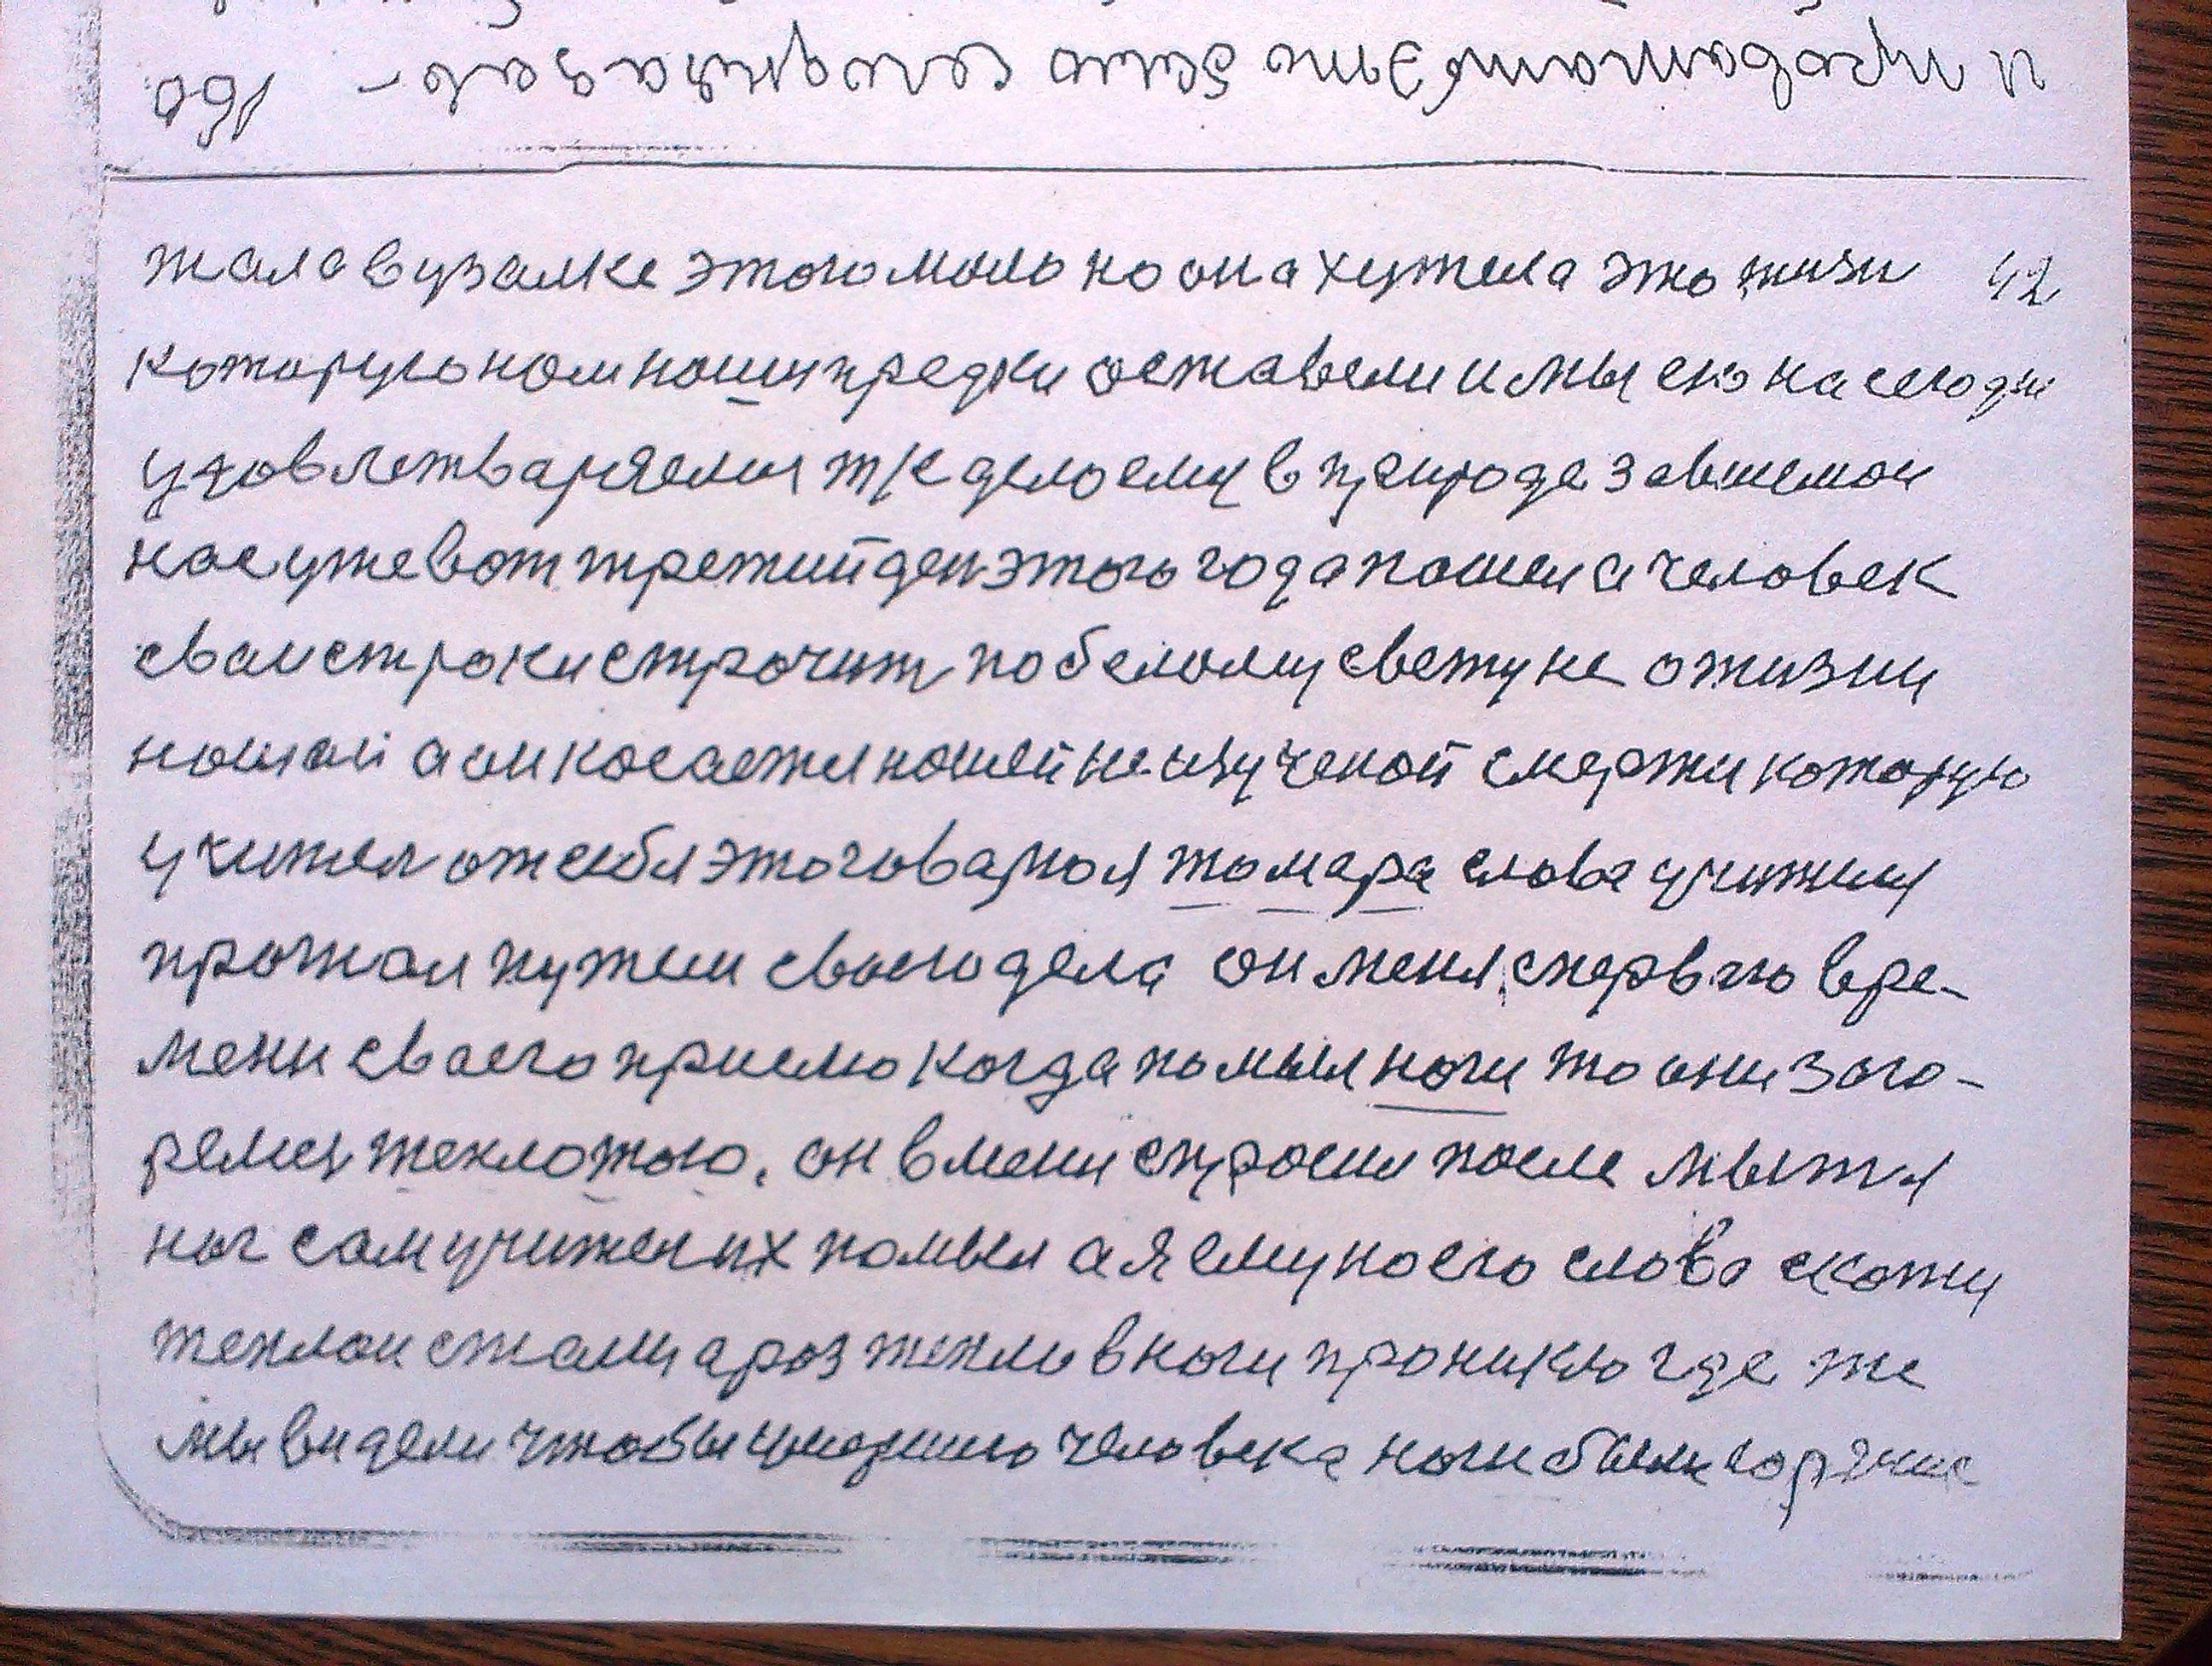 160
жала в узалке этого мало но она хутела это жизн 42
которую нам нашы предки оставели и мы ею на сегодни
удовлетваряемся т/к дело ему в природе за
нас уже вот третий ден этого года пошел а человек
сваи строки строчит по белому свету не о жизни
нашей а он косается нашей не изученой смерти которую
учител от себя это говарюя томара слова учителя
прогнал путем своего дела он меня с первого вре-
мени сваего приемо когда помыл ноги то они заго-
релис теплотою. он в мени спросил после мытя
ног сам учител их помыл а я ему на его слова скажу
теплои стали а раз тепло в ноги проникло где же
мы видели чтобы умаршего человека ноги были горячие